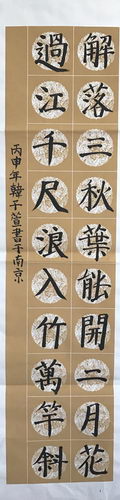 解落三秋葉能開二月花
過江千尺浪入竹萬竿斜
丙申年韓子萱書于南京